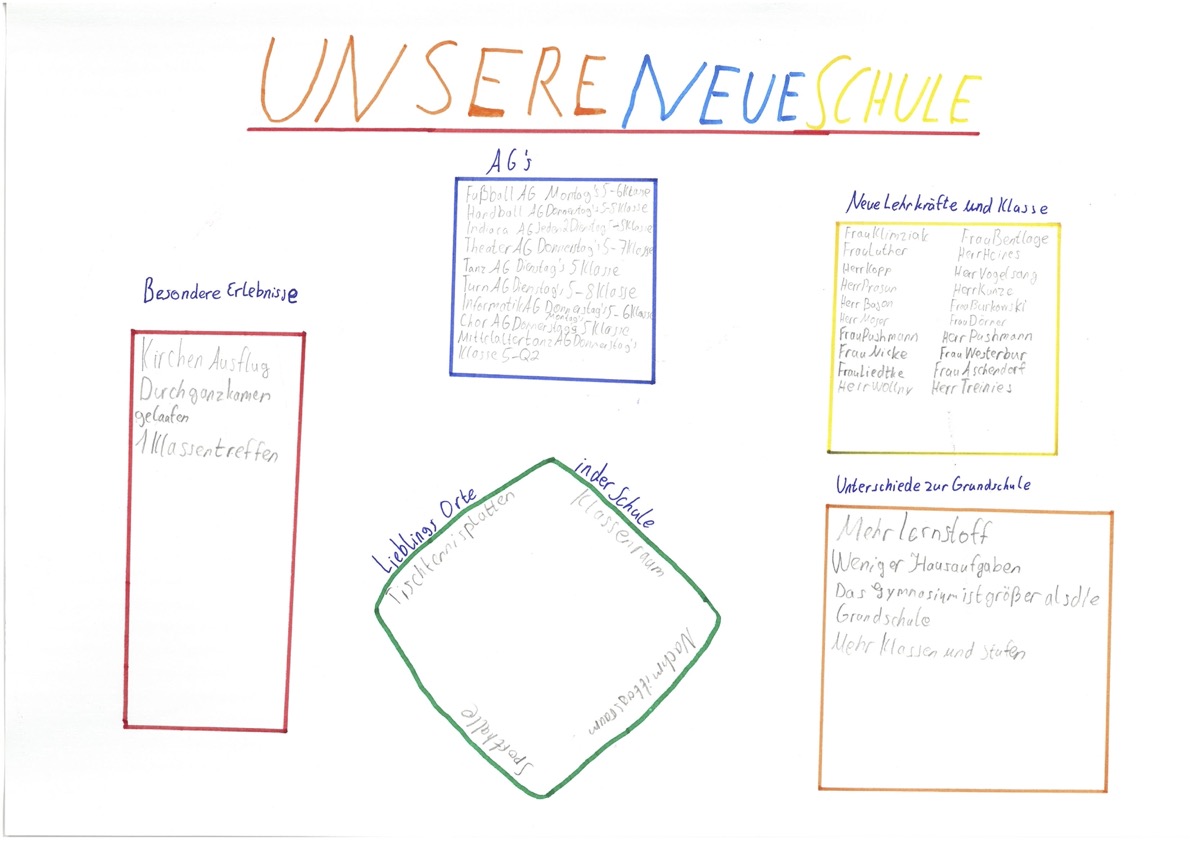 UNSERE NEUE SCHULE
AG's
Fußball AG Montag's 5-6Klasse
Handball AG Donnerstag's 5-8Klasse
Indiaca AG Jeden 2 Dienstag's -8Klasse
Theater AG Donnerstag's 5-7Klasse
Tanz AG Dienstag's 5 Klasse
Turn AG Dienstag's 5-8 Klasse
Informatik AG Donnerstag's 5-6Klasse
Montag's
Chor AG Donnerstags 5 Klasse
Mittelaltertanz AG Donnerstag's
Klasse 5-Q2
Neue Lehrkräfte und Klasse
Frau Klimziak Frau Bentlage
Frau Luther Herr Heires
Herr Kopp Herr Vogelsang
Herr Prosun Herr Kunze
Herr Bogon Frau Burkowski
Herr Moser Frau Dörner
Frau Pushmann Herr Pushmann
Frau Nicke Frau Westerbur
Frau Liedtke Frau Aschendorf
Herr Wollny Herr Treinies
Besondere Erlebnisse
Kirchen Ausflug
Durch ganz kamen
gelaufen
1 Klassentreffen
Lieblings Orte in der Schule
Tischtennisplatten
Klassenraum
Nachmittagsraum
Sporthalle
Unterschiede zur Grundschule
Mehr lernstoff
Weniger Hausaufgaben
Das Gymnasium ist größer als die
Grundschule
Mehr Klassen und stufen